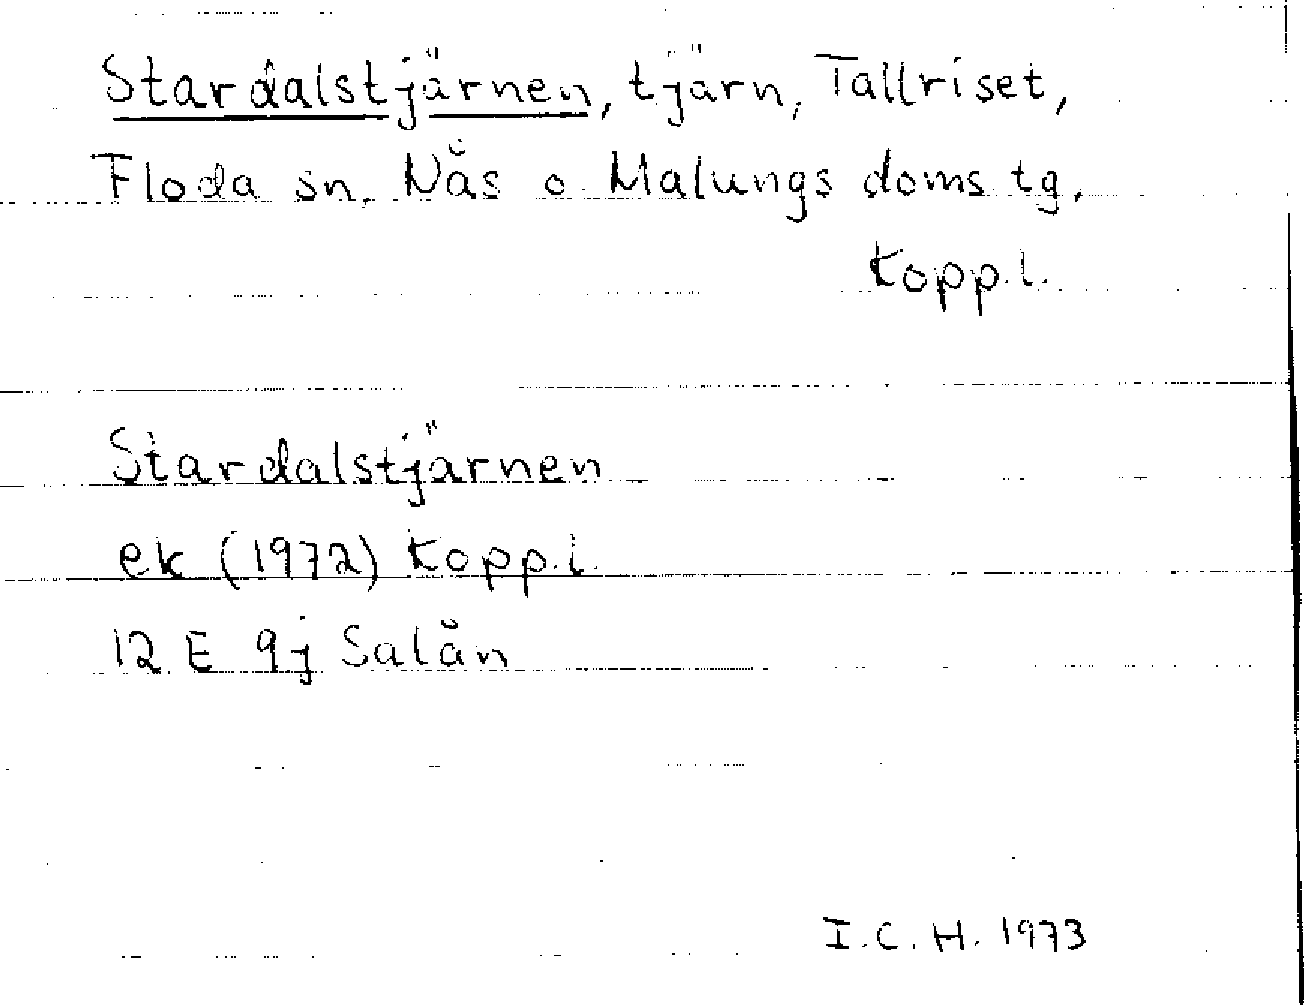 Stardalstjärnen, tjärn, Tallriset,
Floda sn. Nås o. Malungs doms tg.
Kopp.l.
Stardalstjärnen
ek (1972) Kopp.l.
12 E 9j Salån
I.C.H. 1973